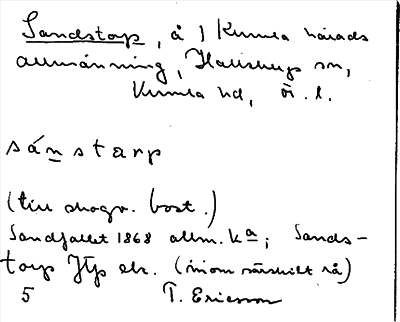 Sandstorp, å ) Kumla härads
allmänning, Hallsbergs sn,
Kumla hd, Ör. l.
sánstarp
(till skogv. bost.)
Sandfallet 1868 allm. kª; Sands-
torp JTp ek. (inom särskilt rå)
5 T. Ericsson